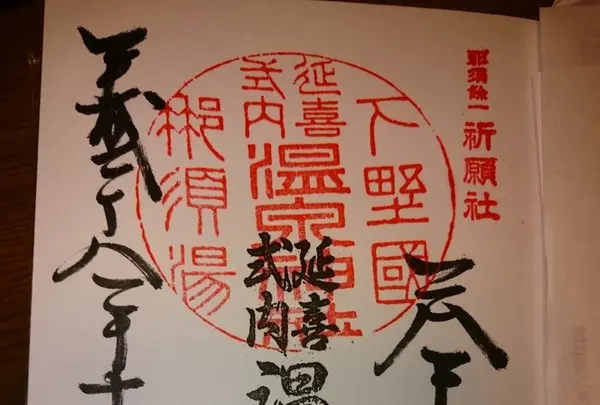 那須餘一
祈願社
下野國
延喜
式内
温泉神社
那須湯
延喜
式内
温
平成二十八年十